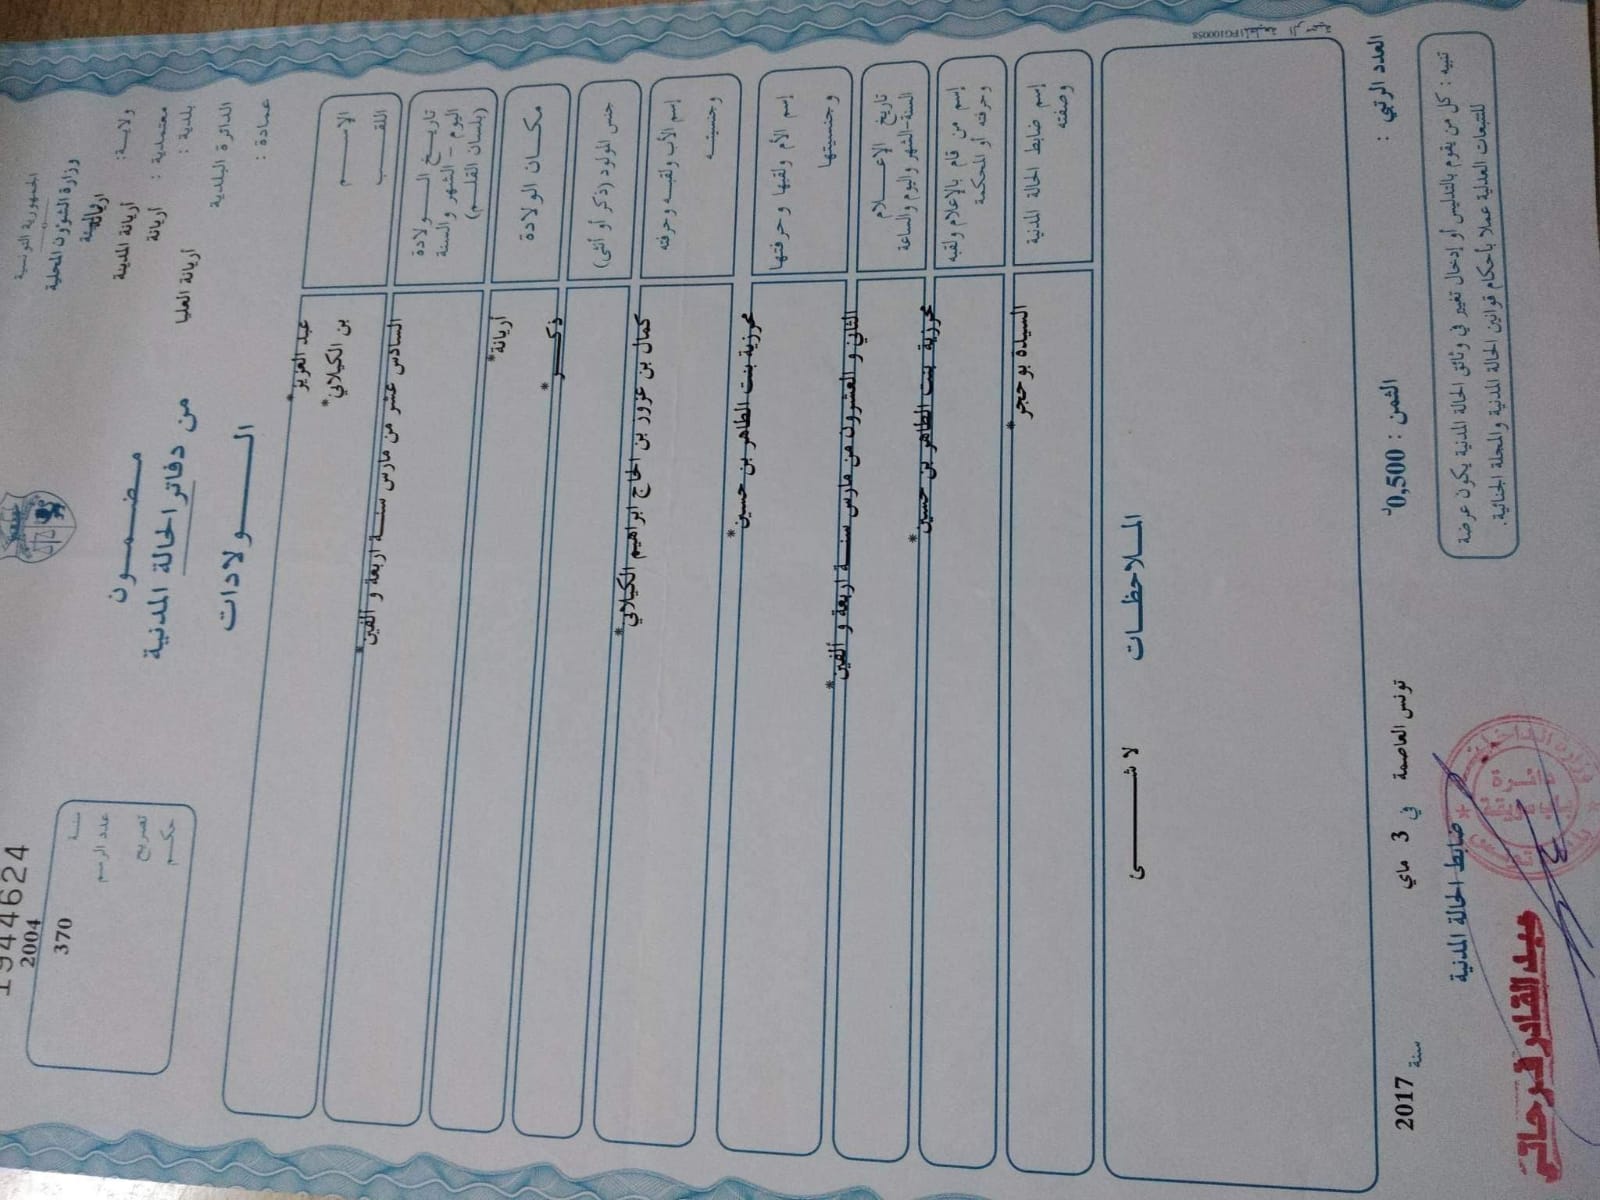 الجمهورية التونسية
وزارة الشؤون المحلية
والبيئة
ولاية: أريانة
معتمدية: أريانة المدينة
بلدية: أريانة
الدائرة البلدية
أريانة العليا
عمادة:
مضمون
من دفاتر الحالة المدنية
الولادات
1944624
سنة 2004
عدد الرسم 370
تصريح
حكم
الإسم
عبد العزيز*
اللقب
بن الكيلاني*
تاريخ الولادة
(اليوم - الشهر والسنة
بلسان القلم)
السادس عشر من مارس سنة اربعة و الفين*
مكان الولادة
أريانة*
جنس المولود (ذكر أو أنثى)
ذكر*
إسم الأب ولقبه وحرفته
وجنسيته
كمال بن عزوز بن الحاج ابراهيم الكيلاني*
إسم الأم ولقبها وحرفتها
وجنسيتها
محرزية بنت الطاهر بن حسين*
تاريخ الإعلام
السنة-الشهر واليوم والساعة
الثاني و العشرون من مارس سنة اربعة و الفين*
إسم من قام بالإعلام ولقبه
وحرفته أو المحكمة
محرزية بنت الطاهر بن حسين*
إسم ضابط الحالة المدنية
وصفته
السيدة بوحجر*
الملاحظات
لا شئ
1FG100058
العدد الرتبي :
الثمن : 0,500د
تونس العاصمة في 3 ماي سنة 2017
تنبيه : كل من يقوم بالتدليس أو إدخال تغيير في وثائق الحالة المدنية يكون عرضة
للتتبعات العدلية عملا بأحكام قوانين الحالة المدنية والمجلة الجنائية.
ضابط الحالة المدنية
عبد القادر فرحاتي